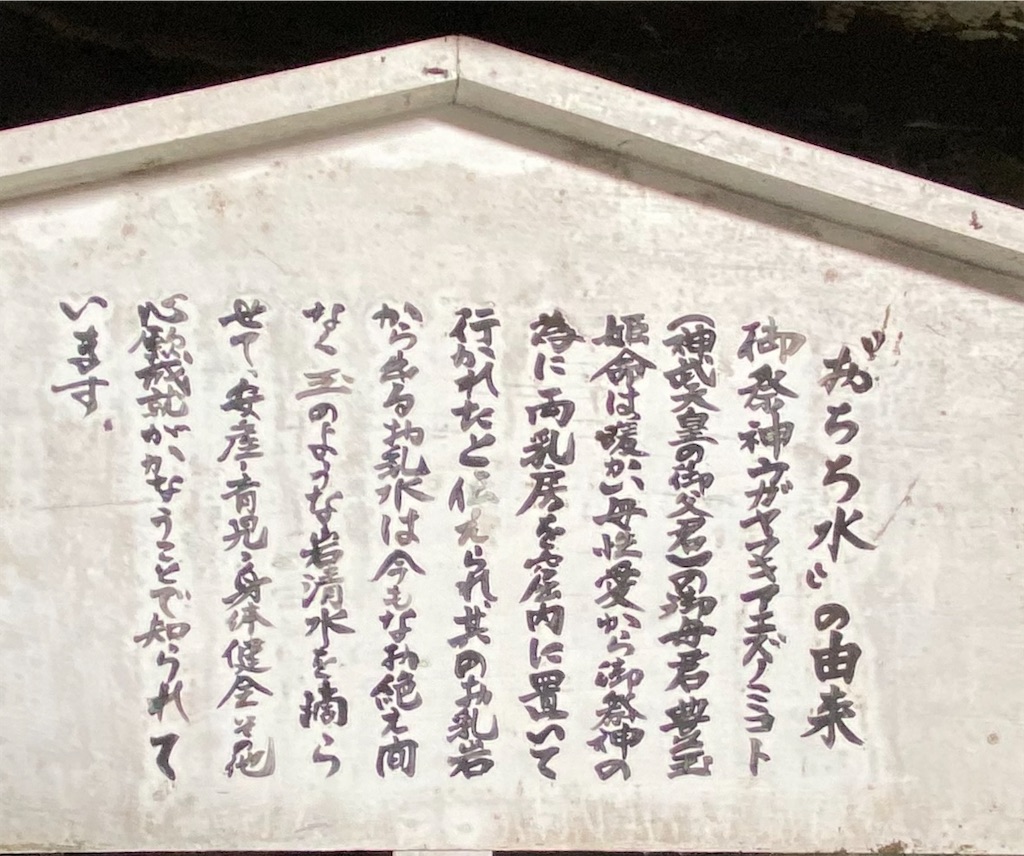 〝おちち水〟の由来
御祭神ウガヤフキアエズノミコト
(神武天皇の御父君)の御母君豊玉
姫命は暖かい母性愛から御祭神の
為に両乳房を窟内に置いて
行かれたと伝えられ、其のお乳岩
から出るお乳水は今もなお絶え間
なく玉のような岩清水を滴ら
せて、安産、育児、身体健全、其他
心願成就がかなうことで知られて
います。